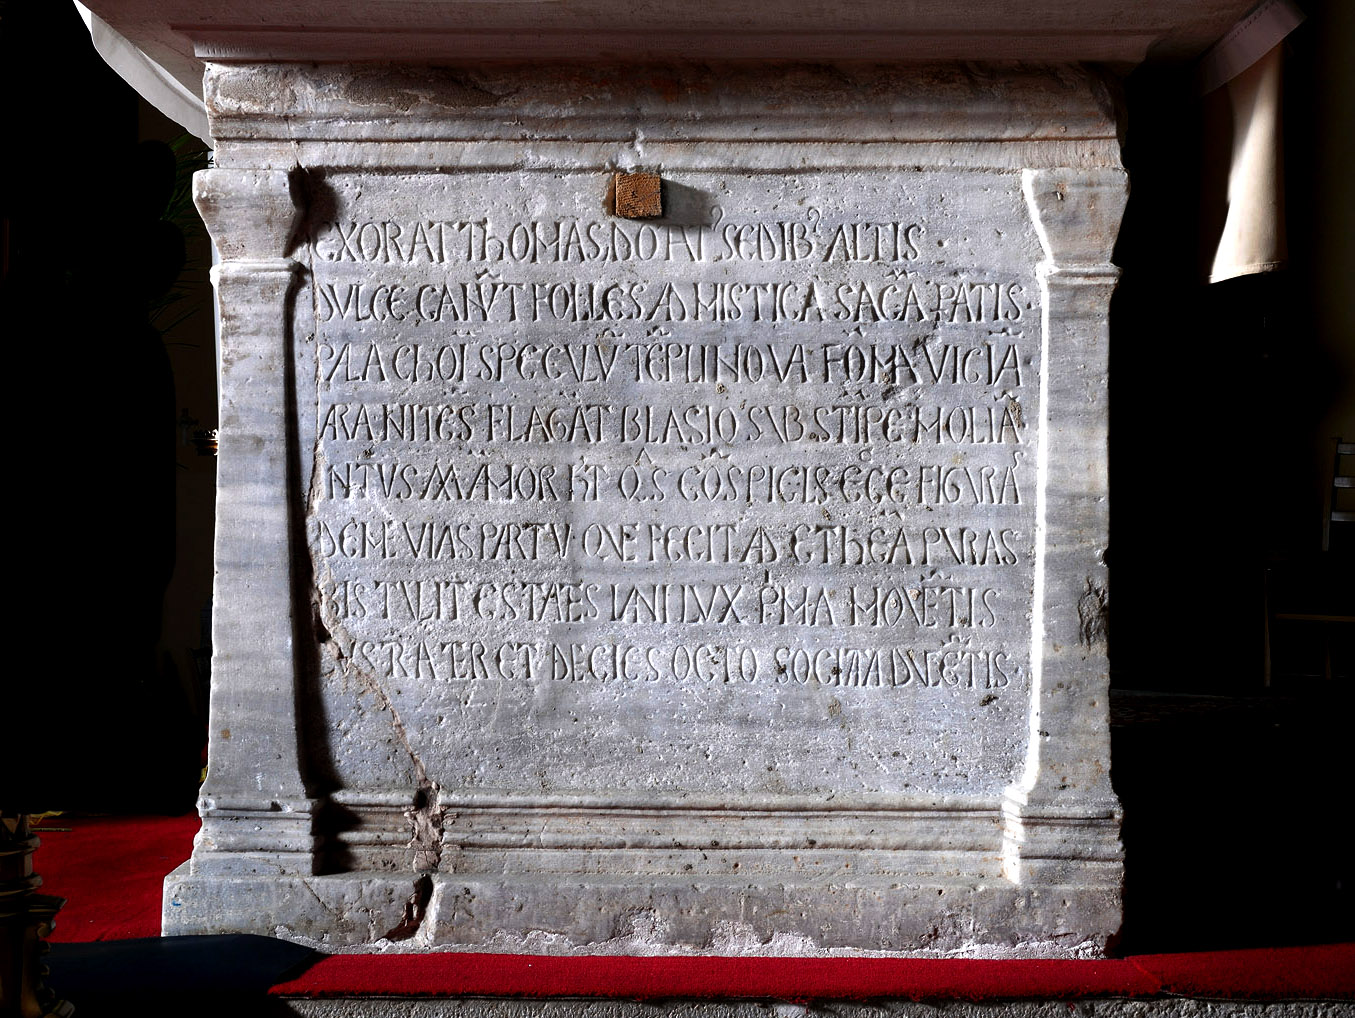 EXORAT ThOMAS DOPNI SEDIB ALTIS
DVLCE CANVT FOLLES AD MISTICA SACA PATIS
PVLAChOI SPECVLV TEPLI NOVA FOMA VICIA
ARA NITES FLAGAT BLASIO SVB STIPE MOLIA
NTVS MAMOR ET QS COSPICIS ECE FIGVRA
DEM VINS PARTV QVE FECIT AD EThEA PVRAS
BIS TVLIT ESTAES IANI LVX PMA MOVETIS
ET DECIES OCTO DVCETIS